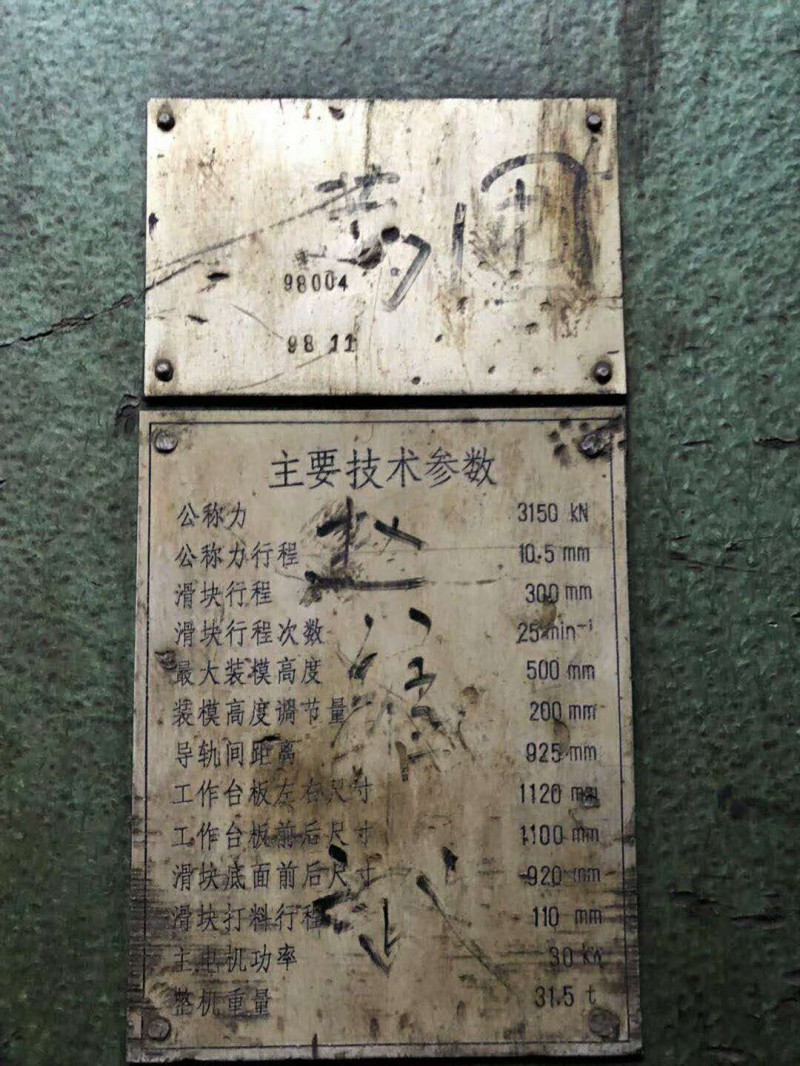 98004
98 11
主要技术参数
公称力 3150 kN
公称力行程 10.5 mm
滑块行程 300 mm
滑块行程次数 25 min⁻¹
最大装模高度 500 mm
装模高度调节量 200 mm
导轨间距离 925 mm
工作台板左右尺寸 1120 mm
工作台板前后尺寸 1100 mm
滑块底面前后尺寸 920 mm
滑块打料行程 110 mm
主电机功率 30 kW
整机重量 31.5 t